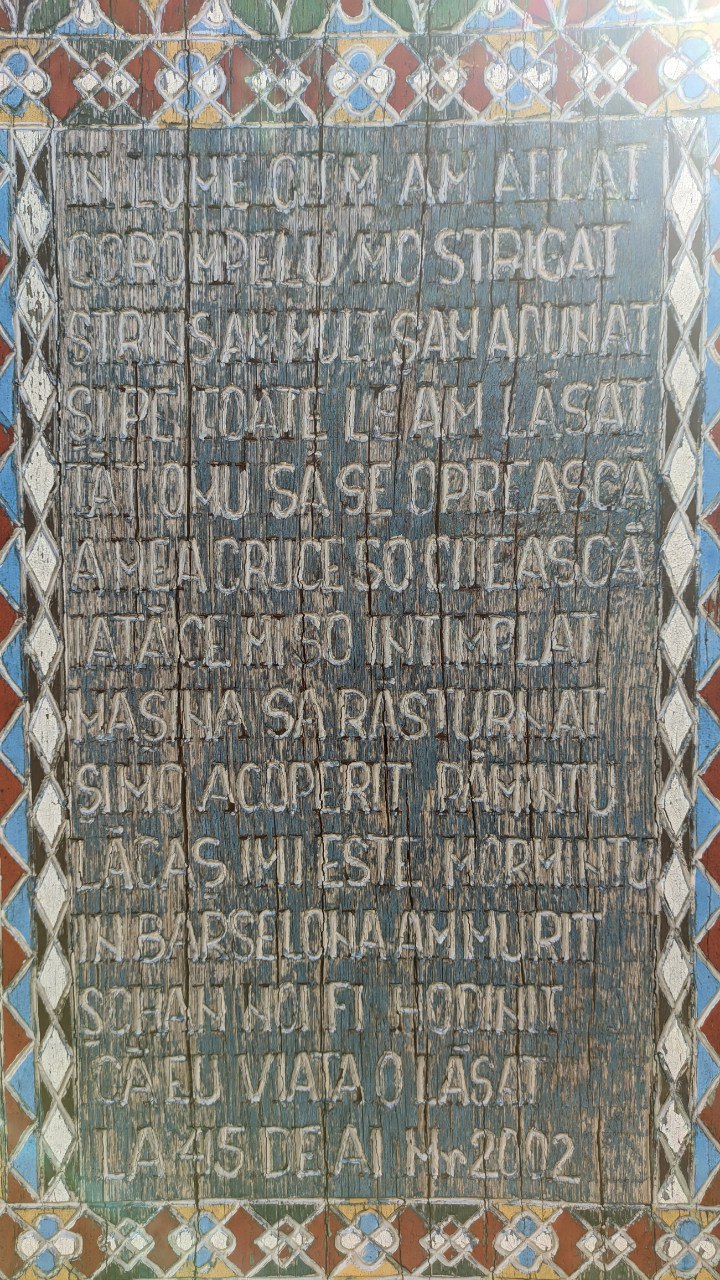 IN LUME CUM AM AFLAT
COROMPELU MO STRIGAT
STRINSAM MULT ȘAM ADUNAT
ȘI PE TOATE LEAM LĂSAT
TĂT OMU SĂ SE OPREASCĂ
A MEA CRUCE SO CITEASCĂ
IATĂ CE MI SO INTIMPLAT
MAȘINA SĂ RĂSTURNAT
ȘIMO ACOPERIT PĂMINTU
LĂCAȘ IMI ESTE MORMINTU
IN BARSELONA AM MURIT
ȘOHAN NOI FI HODINIT
CĂ EU VIATA O LĂSAT
LA 45 DE AI Mr 2002